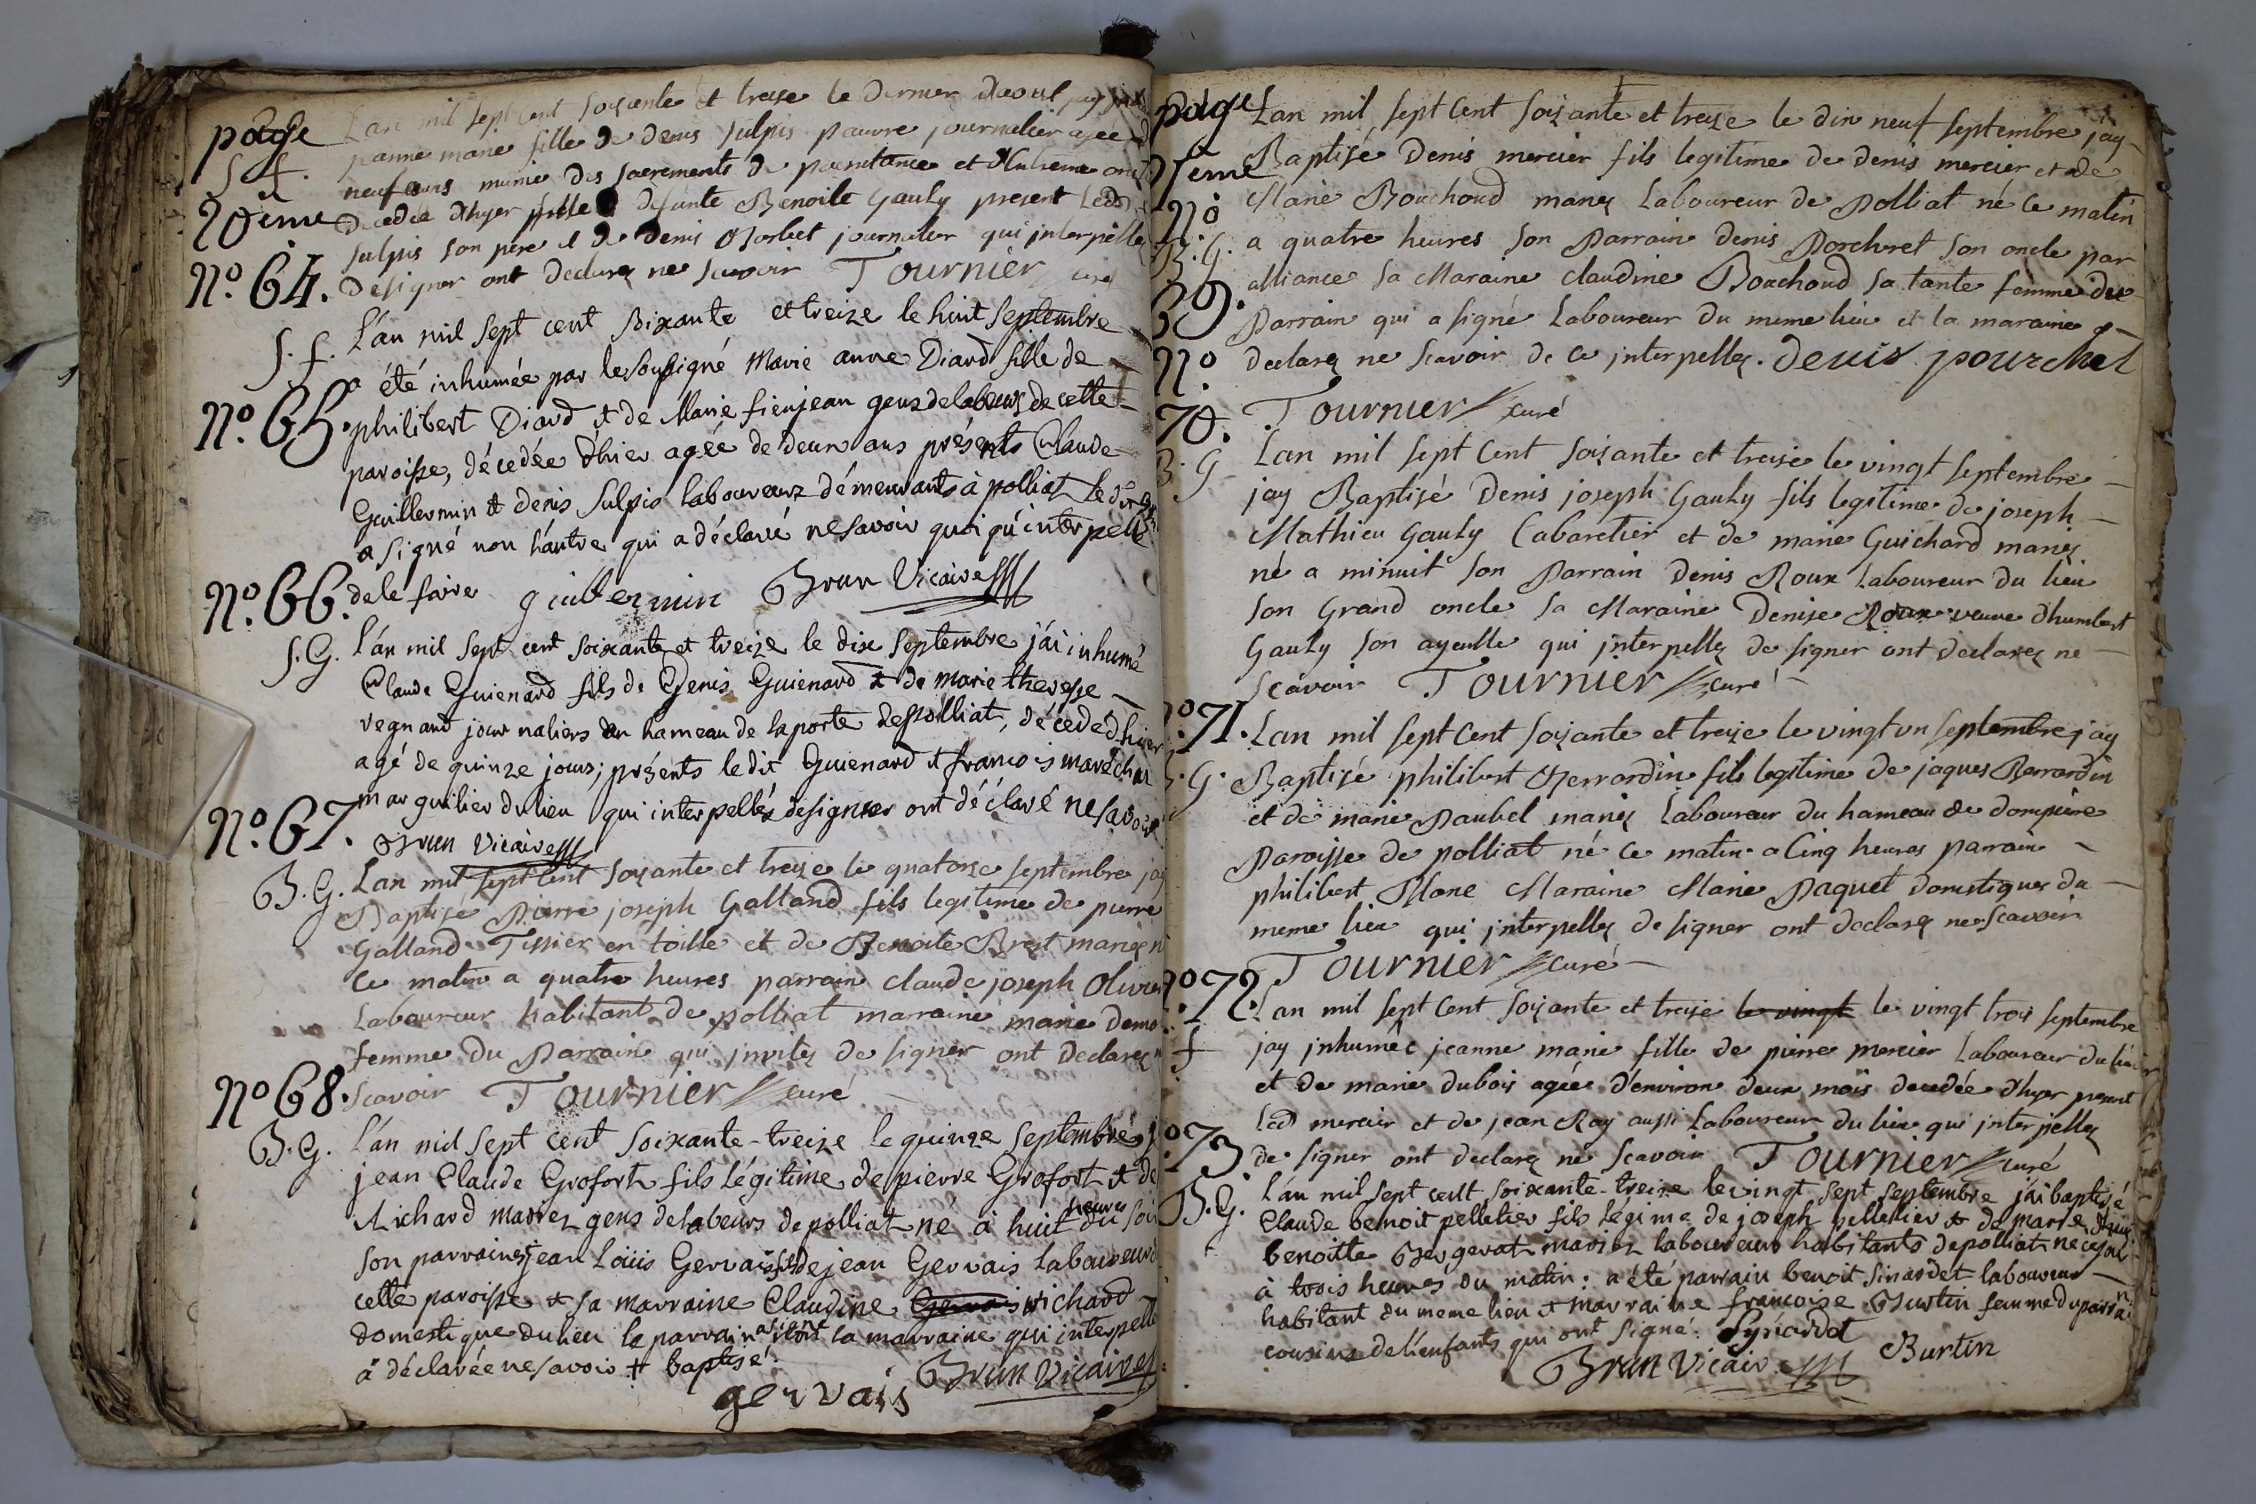 page
S. f.
20eme
Lan mil sept cent soixante et treize le dernier daoust jay
marie fille de denis sulpis pauvre journalier agee
neuf ans munie des sacrements de poenitance et dextreme
decedée dhyer fille de defunte Benoite Gauty present Led
sulpis son pere et de denis journalier qui interpellez
No. 64. de signer ont declarez ne scavoir Tournier curé
S. f. L'an mil sept cent soixante et treize le huit septembre
a été inhumée par le soussigné Marie anne Diard fille de
No. 65. philibert Diard et de Marie fienjean gens de labeurs de cette
paroisse, décedée d'hier agée de deux ans présents Claude
Guillermin et denis sulpis laboureurs démeurants à polliat le dr
a signé non l'autre qui a déclaré ne savoir quoi qu'interpellé
No. 66. de le faire guillermin Brun Vicaire
S. G. L'an mil sept cent soixante et treize le dix septembre j'ai inhumé
Claude Guienard fils de Denis Guienard et de marie theresse
regnaud journaliers du hameau de la porte de polliat, décedé d'hier
agé de quinze jours; présents le dit Guienard et francois maréchal
No. 67. marguilier du lieu qui interpellés de signer ont déclaré ne savoir
Brun Vicaire
B. G. Lan mil sept cent soixante et treize le quatorze septembre jay
Baptisé Pierre joseph Galland fils legitime de pierre
Galland Tissier en toille et de Benoite Brest mariez né
ce matin a quatre heures parrain claude joseph Olivier
Laboureur habitant de polliat marraine marie
femme du Parrain qui invitez de signer ont declarez n
No 68. Scavoir Tournier curé
B. G. L'an mil sept cent soixante-treize le quinze septembre
jean Claude Grofort fils légitime de pierre Grofort et de
Richard mariez gens de labeurs de polliat né à huit heures du soir
son parrain est jean Loüis Gervais fils de jean Gervais laboureur d
cette paroisse et sa marraine Claudine Gervais richard
domestique du lieu le parrain a signé non la marraine qui interpellé
a déclarée ne savoir + baptisé.
gervais Brun Vicaire
page
No
B. G.
69.
Lan mil sept cent soixante et treize le dix neuf septembre jay
Baptisé Denis mercier fils legitime de denis mercier et de
Marie Bouchoud mariez Laboureur de Polliat né ce matin
a quatre heures son Parrain Denis Porcheret son oncle par
alliance sa Maraine claudine Bouchoud sa tante femme du
Parrain qui a signé Laboureur du meme lieu et la maraine a
No declarez ne scavoir de ce interpellez. denis pourchet
70. Tournier curé
B. G Lan mil sept cent soixante et treize le vingt septembre
jay Baptisé Denis joseph Gauty fils legitime de joseph
Mathieu Gauty Cabaretier et de marie Guichard mariez
né a minuit son Parrain Denis Roux Laboureur du lieu
son Grand oncle sa Maraine Denise Roux veuve dhumbert
Gauty son ayeulle qui interpellez de signer ont declarez ne
scavoir Tournier curé
No 71. Lan mil sept cent soixante et treize le vingt un septembre jay
B. G. Baptisé philibert Berrardin fils legitime de jaques Berrardin
et de marie Paubel mariez Laboureur du hameau de dompierre
Paroisse de polliat né ce matin a Cinq heures parrain
philibert Maraine Marie Paquet domestiques du
meme lieu qui interpellez de signer ont declarez ne scavoir
Tournier curé
No 72. Lan mil sept cent soixante et treize le vingt le vingt trois septembre
f jay inhumée jeanne marie fille de pierre mercier Laboureur du lieu
et de marie dubois agée d'environ deux mois decedée dhyer present
Led mercier et de jean Ray aussi Laboureur du lieu qui interpellez
No 73. de signer ont declarez ne scavoir Tournier curé
B. G. L'an mil sept cent soixante-treize le vingt sept septembre j'ai baptisé
Claude benoit pelletier fils légime de joseph pelletier et de marie
benoitte Bergerat mariez laboureurs habitants de polliat né ce jour
à trois heures du matin: a été parrain benoit sinardet laboureur
habitant du meme lieu et marraine francoise Burtin femme du parrain
cousins de l'enfants qui ont signé. Synardet
Brun Vicaire Burtin